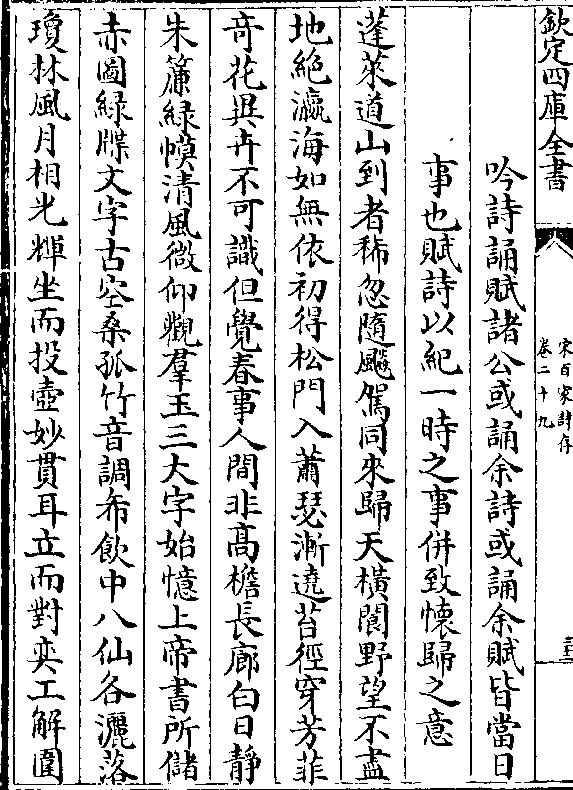 欽定四庫全書
宋百家詩存
卷二十九
三十二
吟詩誦賦諸公或誦余詩或誦余賦皆當日
事也賦詩以紀一時之事併致懷歸之意
蓬萊道山到者稀忽隨飈駕同來歸天橫閬野望不盡
地絶瀛海如無依初得松門入蕭瑟漸遶苔徑穿芳菲
竒花異卉不可識但覺春事人間非高檐長廊白日靜
朱簾緑幙清風微仰觀羣玉三大字始憶上帝書所儲
赤圖緑牒文字古空桑孤竹音調布飲中八仙各灑落
瓊林風月相光輝坐而投壺妙貫耳立而對奕工解圍